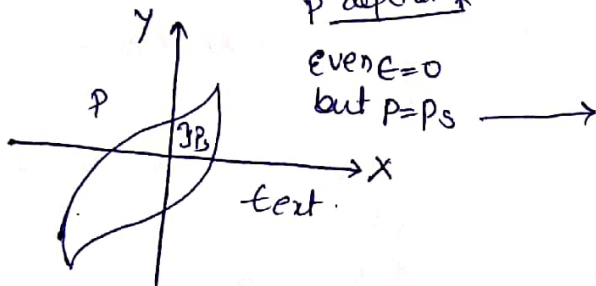 P
Even E=0
but P=Ps
Y
P
}Ps
X
Eext.